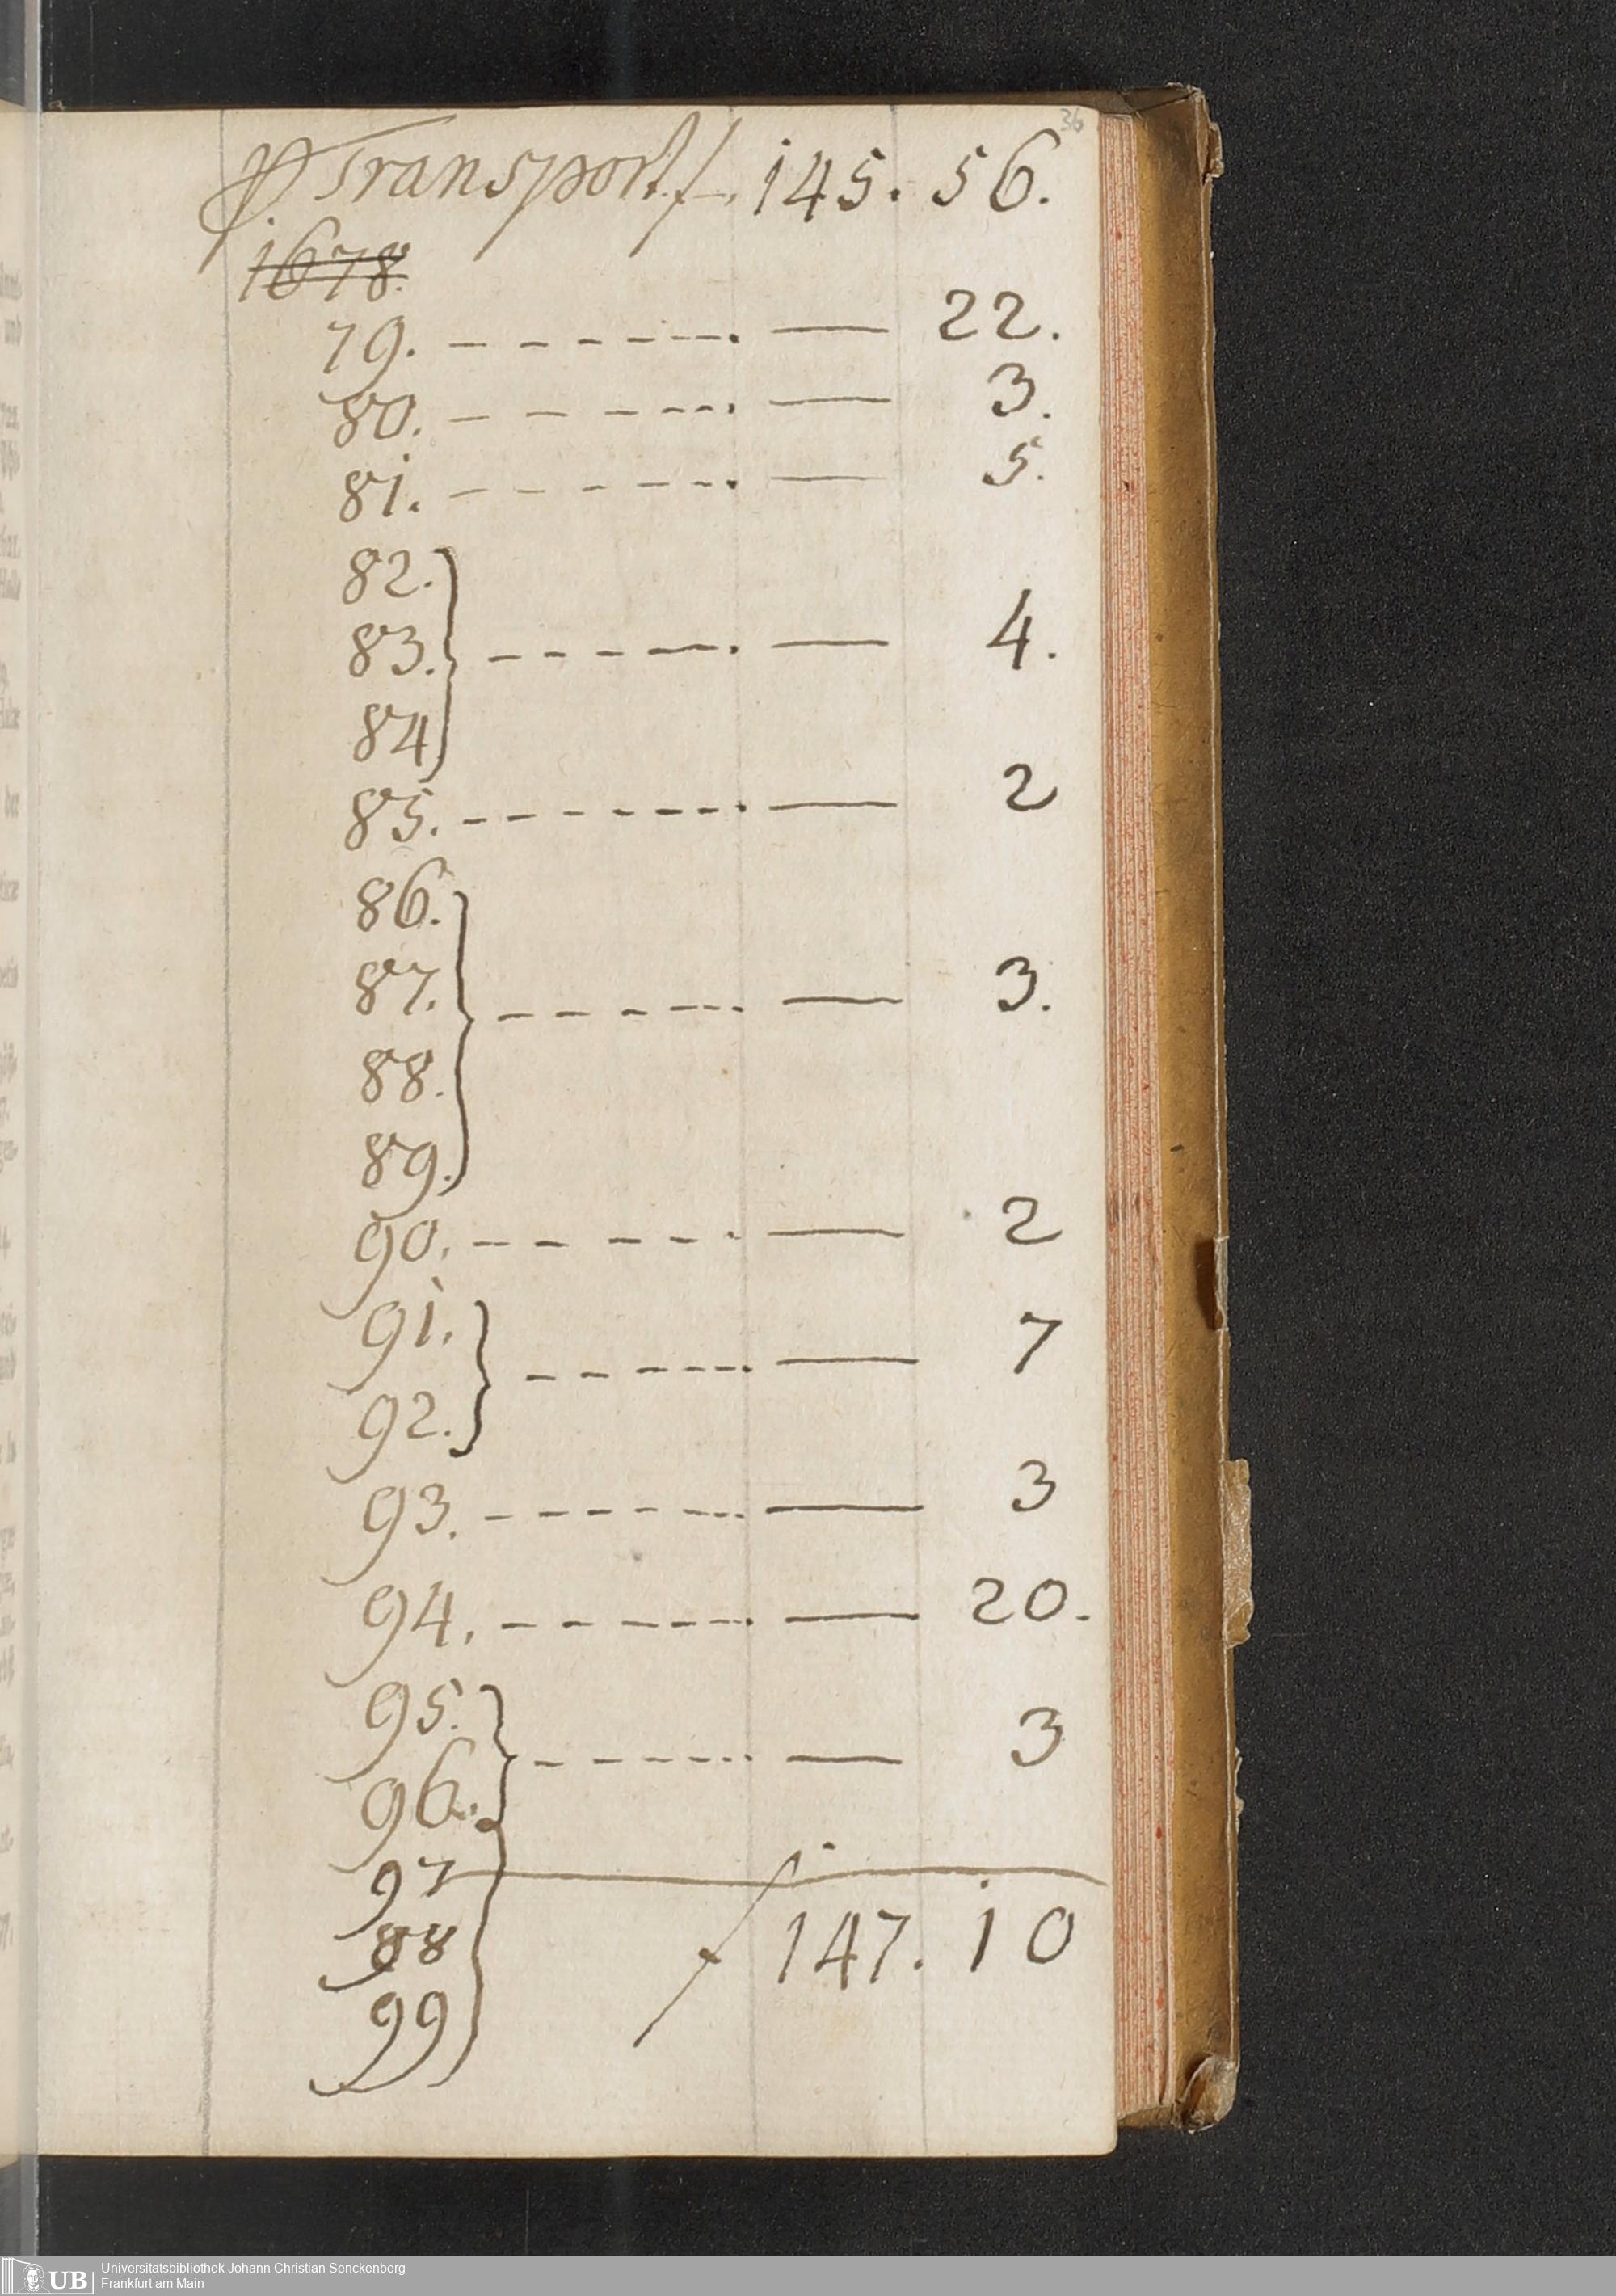 36
p. Transport f. 145. 56.
1678.
79. – – – – – . — 22.
80. – – – – – . — 3.
81. – – – – – . — 5.
82.
83. – – – – – . — 4.
84
85. – – – – – . — 2
86.
87. – – – – – . — 3.
88.
89.
90. – – – – – . — 2
91. – – – – – . — 7
92.
93. – – – – – . — 3
94. – – – – – . — 20.
95. – – – – – . — 3
96.
97
f 147. 10
88
99
UB Universitätsbibliothek Johann Christian Senckenberg
Frankfurt am Main